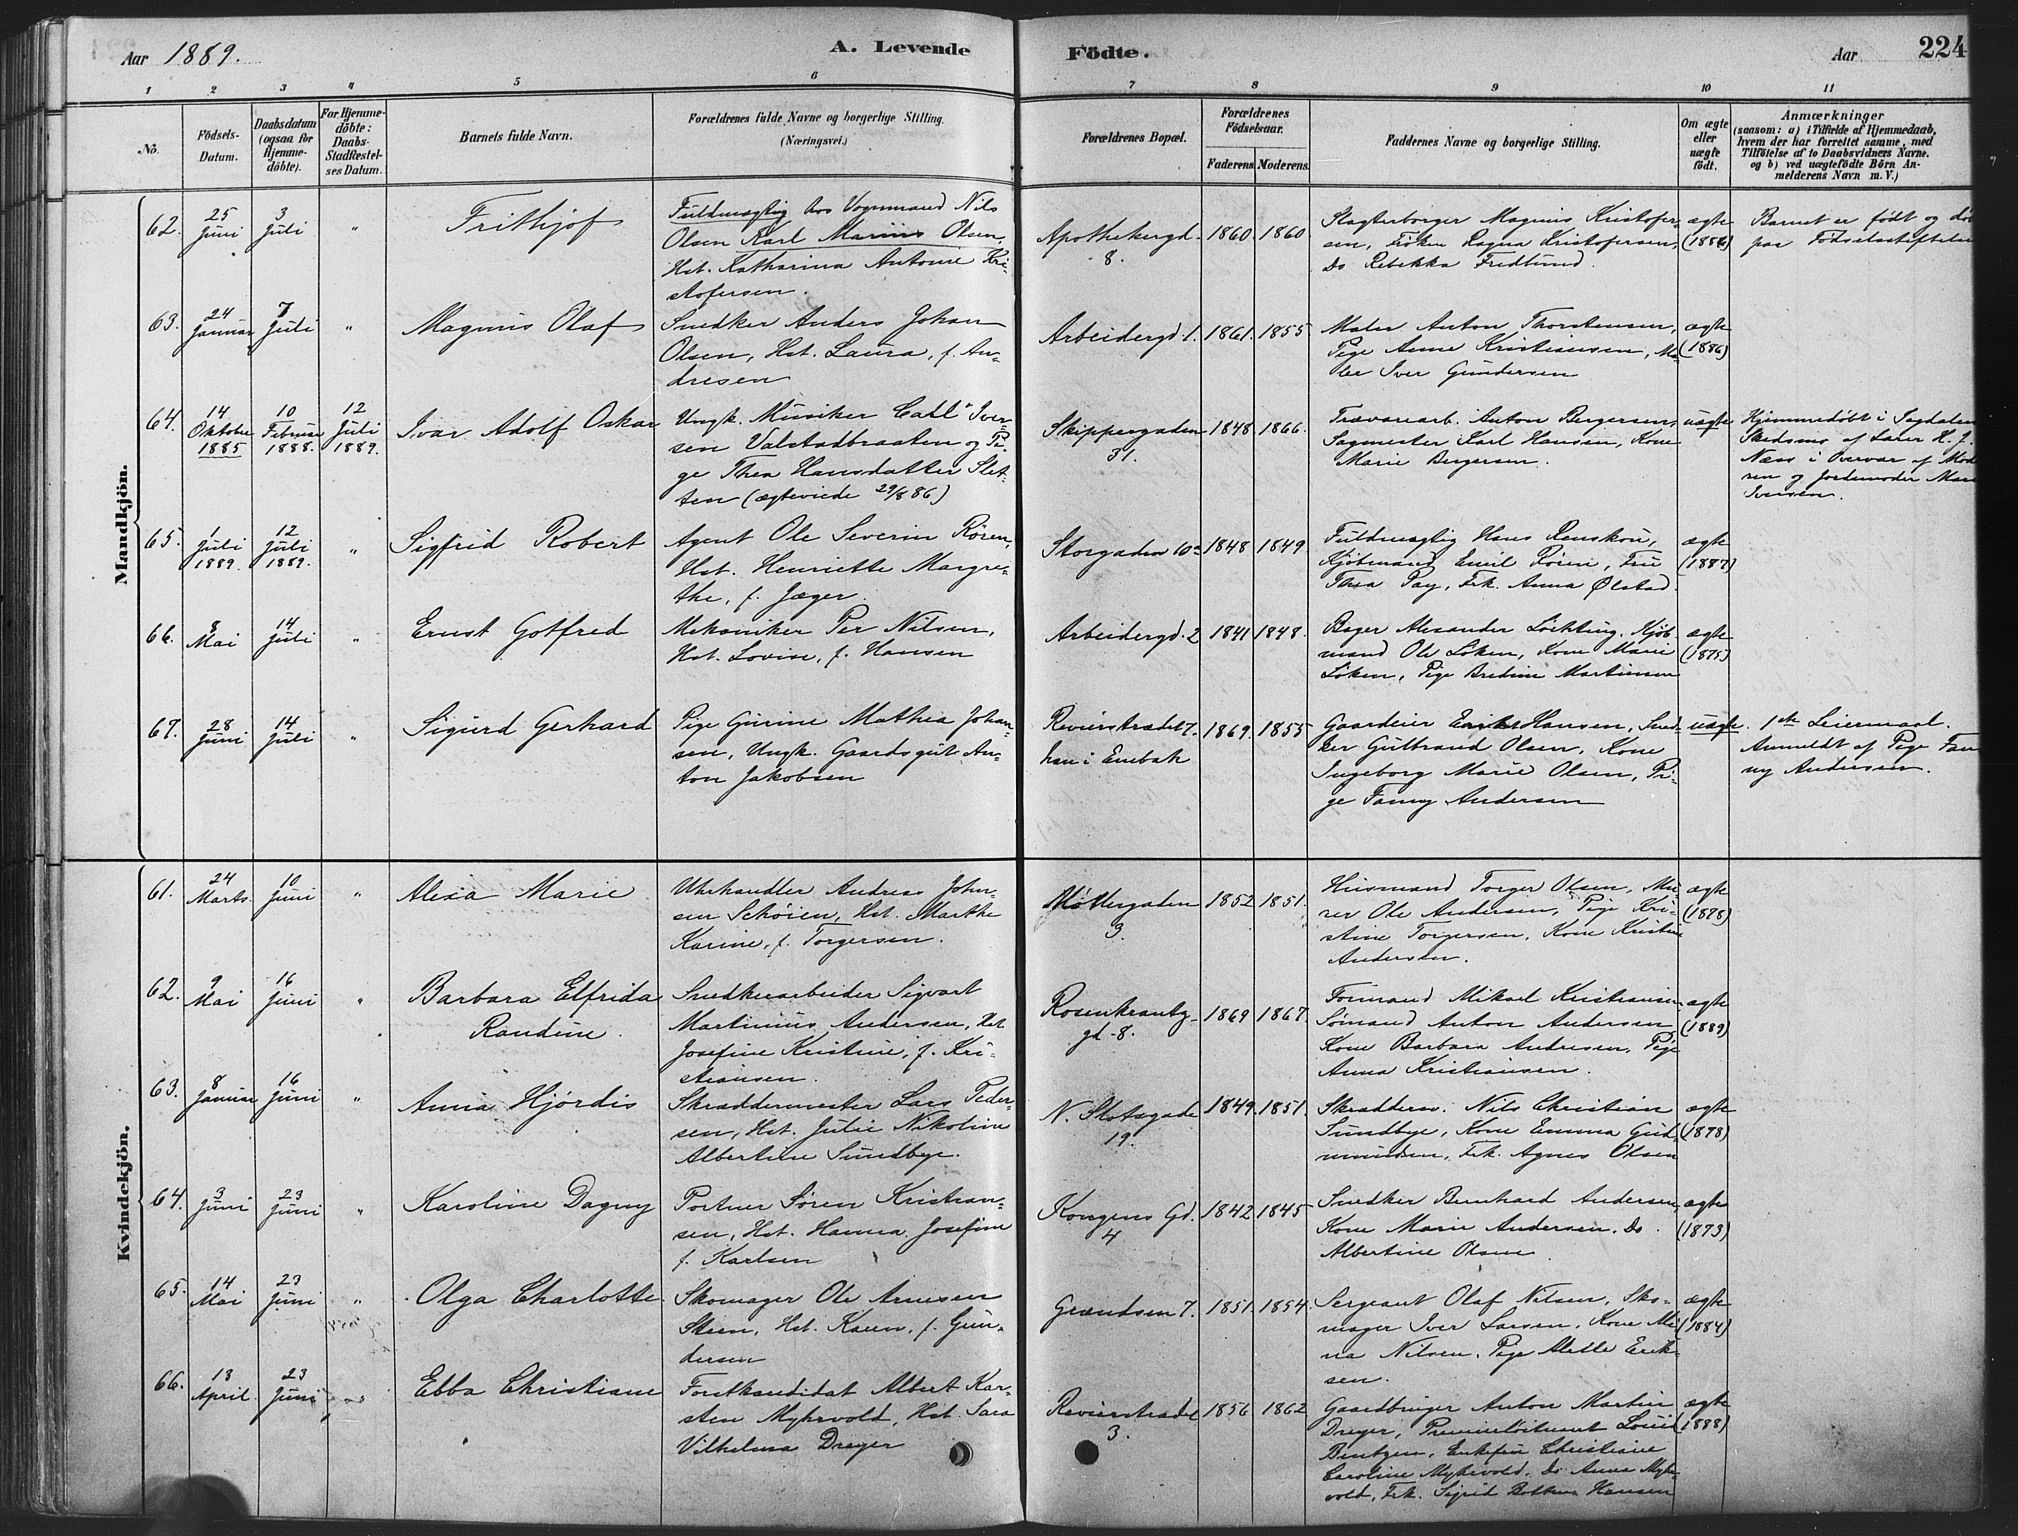 Aar 1889.
A. Levende
Födte.
Aar
224
1 2 3 4 5 6 7 8 9 10 11
No.
Födsels-
Datum.
Daabsdatum
(ogsaa for
Hjemme-
döbte).
For Hjemme-
döbte:
Daabs-
Stadfæstel-
ses Datum.
Barnets fulde Navn.
Forældrenes fulde Navne og borgerlige Stilling.
(Næringsvei.)
Forældrenes Bopæl.
Forældrenes
Födselsaar.
Faderens. Moderens.
Faddernes Navne og borgerlige Stilling.
Om ægte
eller
uægte
födt.
Anmærkninger
(saasom: a) i Tilfælde af Hjemmedaab,
hvem der har forrettet samme, med
Tilföielse af to Daabsvidners Navne.
og b) ved uægtefödte Börn An-
melderens Navn m. V.)
Mandkjön.
62.
25
Juni
3
Juli
"
Frithjof
Fuldmægtig hos Vognmand Nils
Olsen Karl Marius Olsen,
Hst. Katharina Antonie Kri-
stofersen.
Apothekergd.
8.
1860. 1860
Slagterborger Magnus Kristofer-
sen, Frøken Ragna Kristofersen,
Do Rebekka Fredlund.
ægte
(1886)
Barnet er født og
paa Fødselsstiftelse
63.
24
Januar
7
Juli
"
Magnus Olaf
Snedker Anders Johan
Olsen, Hst. Laura, f. An-
dresen
Arbeidergd. 1.
1861. 1855
Maler Anton Thorstensen,
Pige Anne Kristiansen, Ma-
ler Iver Gundersen
ægte
(1886)
64.
14
Oktober
1885
10
Februar
1888.
12
Juli
1889.
Ivar Adolf Oskar
Ungk. Musiker Carl Iver-
sen Valstadbraaten og Pi-
ge Thea Hansdatter Slet-
ten (ægteviede 29/8 86)
Skippergaden
31.
1848 1866.
Trævarearb. Anton Bergersen,
Sagmester Karl Hansen, Kone
Marie Bergersen.
uægte
Hjemmedøbt i Sagdalen
Skedsmo af Lærer H. J.
Næss i Overvær af Mod
ren og Jordemoder
Iversen.
65.
1
Juli
1889.
12
Juli
1889.
"
Sigfrid Robert
Agent Ole Severin Røren,
Hst. Henriette Margre-
the, f. Jæger.
Storgaden 10a
1848 1849
Fuldmægtig Hans Renskou,
Kjøbmand Emil Røren, Fru
Thea Pay, Frk. Anna Ølstad.
ægte
(1887)
66.
8
Mai
14
Juli
"
Ernst Gotfred
Mekaniker Per Nilsen,
Hst. Lovise, f. Hansen
Arbeidergd. 2
1841 1848.
Bager Alexander Løchting, Kjøb-
mand Ole Løken, Kone Marie
Løken, Pige Bredine Martinsen
ægte
(1875)
67.
28
Juni
14
Juli
"
Sigurd Gerhard
Pige Gurine Mathea Johan-
sen, Ungk. Gaardsgut An-
ton Jakobsen
Revierstrædet 7.
han i Enebak
1869. 1855
Gaardeier Erik Hansen, Sned-
ker Gulbrand Olsen, Kone
Ingeborg Marie Olsen, Pi-
ge Fanny Andersen
uægte
1ste Leiermaal.
Anmeldt af Pige Fan
ny Andersen.
Kvindekjön.
61.
24
Marts.
10
Juni
"
Alexia Marie
Uhrhandler Andreas John-
sen Schøien, Hst. Marthe
Karine, f. Torgersen.
Møllergaden
3.
1852 1851.
Husmand Torger Olsen, Mu-
rer Ole Andersen, Pige Kri-
stine Torgersen, Kone Kristine
Andersen.
ægte
(1878)
62.
9
Mai
16
Juni
"
Barbara Elfrida
Randine.
Snedkerarbeider Sigvart
Martinius Andersen, Hst.
Josefine Kristine, f. Kri-
stiansen.
Rosenkrantz-
gd. 8.
1869 1867.
Formand Mikael Kristiansen
Sømand Anton Andersen
Kone Barbara Andresen, Pige
Anna Kristiansen.
ægte
(1889)
63.
8
Januar
16
Juni
"
Anna Hjørdis
Skræddermester Lars Peder-
sen, Hst. Julie Nikoline
Albertine Sundbye.
N. Slotsgade
19.
1849. 1851.
Skrædderm. Nils Christian
Sundbye, Kone Emma Gud-
mundsen, Frk. Agnes Olsen
ægte
(1878)
64.
3
Juni
23
Juni
"
Karoline Dagny
Portner Søren Kristian-
sen, Hst. Hanna Josefine
f. Karlsen
Kongens Gd.
4
1842 1845
Snedker Bernhard Andersen,
Kone Marie Andersen. Do.
Albertine Olsen
ægte
(1873)
65.
14
Mai
23
Juni
"
Olga Charlotte
Skomager Ole Arnesen
Skeen, Hst. Karen, f. Gun-
dersen
Grændsen 7.
1851. 1854.
Sergeant Olaf Nilsen, Sko-
mager Iver Larsen, Kone Mi-
na Nilsen. Pige Mette Erik-
sen.
ægte
(1884)
66.
13
April.
23
Juni
"
Ebba Christiane
Forstkandidat Albert Kar-
sten Myhrvold, Hst. Sara
Vilhelma Dreyer
Revierstrædet
3.
1856 1862
Gaardbruger Anton Martin
Dreyer, Premierløitnant Louis
Bentzen, Enkefru Christiane
Caroline Myhrvold. Do Anna Myhr-
vold, Frk. Sigrid Hansen
ægte
(1888)